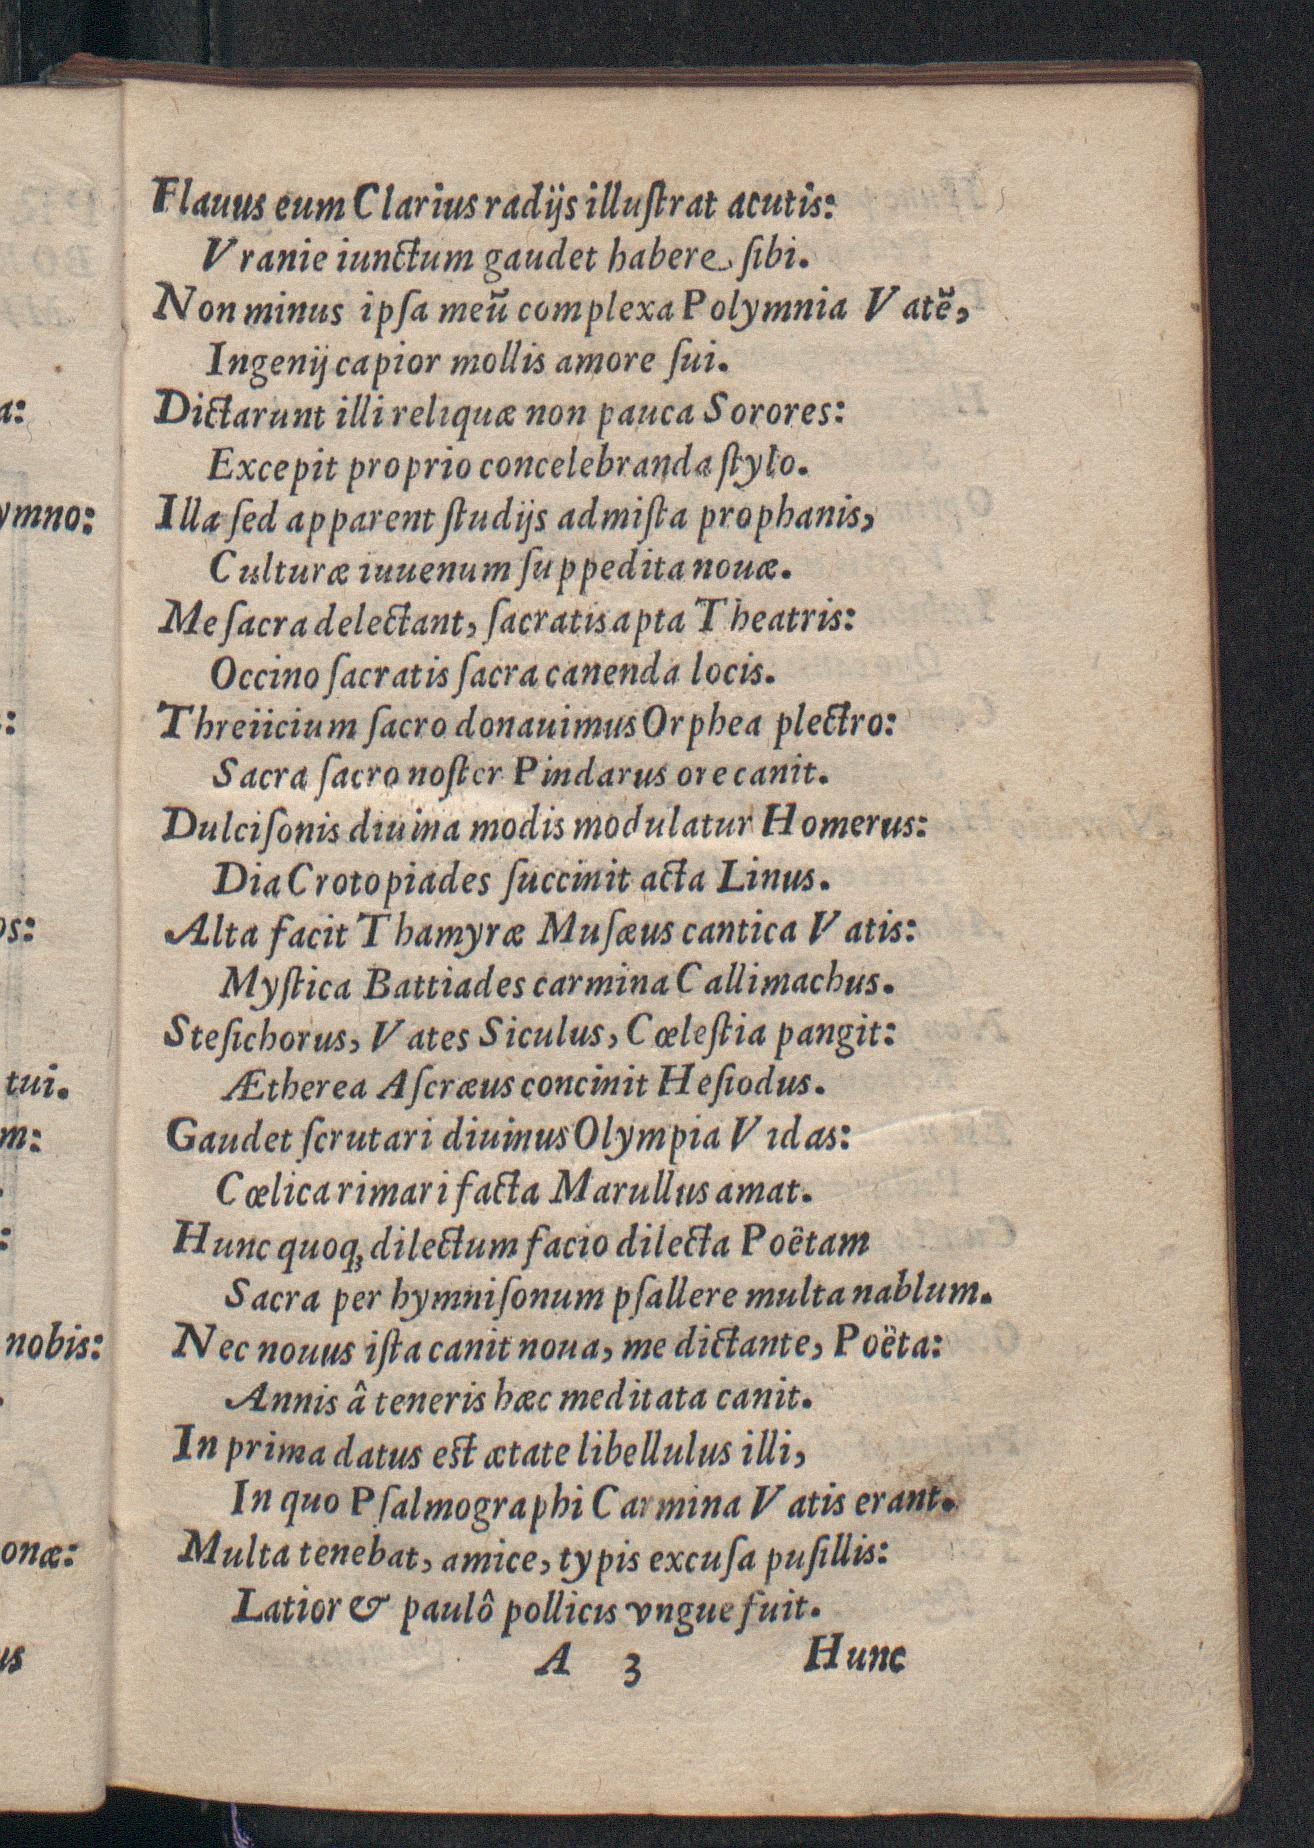 Flauus eum Clarius radijs illuſtrat acutis:
Vranie iunctum gaudet habere ſibi.
Non minus ipſa meū complexa Polymnia Vatē,
Ingenij capior mollis amore ſui.
Dictarunt illi reliquæ non pauca Sorores:
Excepit proprio concelebranda ſtylo.
Illa ſed apparent ſtudijs admiſta prophanis,
Culturæ iuuenum ſuppedita nouæ.
Me ſacra delectant, ſacratis apta Theatris:
Occino ſacratis ſacra canenda locis.
Threiicium ſacro donauimus Orphea plectro:
Sacra ſacro noſter Pindarus ore canit.
Dulciſonis diuina modis modulatur Homerus:
Dia Crotopiades ſuccinit acta Linus.
Alta facit Thamyræ Muſæus cantica Vatis:
Myſtica Battiades carmina Callimachus.
Steſichorus, Vates Siculus, Cœleſtia pangit:
Ætherea Aſcræus concinit Heſiodus.
Gaudet ſcrutari diuinus Olympia Vidas:
Cœlica rimari facta Marullus amat.
Hunc quoq; dilectum facio dilecta Poëtam
Sacra per hymniſonum pſallere multa nablum.
Nec nouus iſta canit noua, me dictante, Poëta:
Annis â teneris hæc meditata canit.
In prima datus eſt ætate libellulus illi,
In quo Pſalmographi Carmina Vatis erant.
Multa tenebat, amice, typis excuſa puſillis:
Latior & paulô pollicis vngue fuit.
A 3 Hunc
a:
ymno:
:
os:
tui.
m:
.
:
nobis:
.
onæ:
us